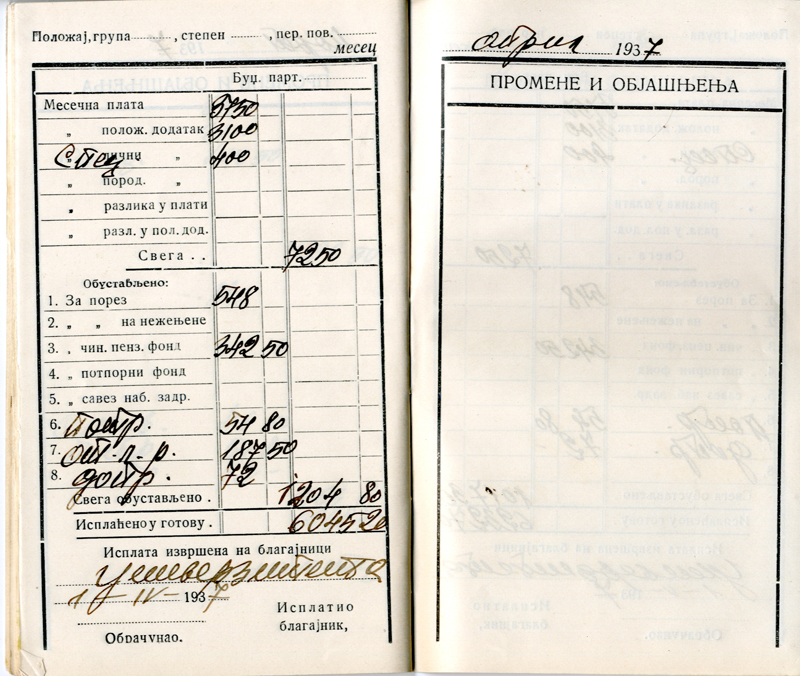 Положај, група , степен , пер. пов.
месец
Буџ. парт.
Месечна плата 3750
„ полож. додатак 3100
Спец. „ 400
„ пород. „
„ разлика у плати
„ разл. у пол. дод.
Свега . . 7250
Обустављено:
1. За порез 548
2. „ „ на нежењене
3. „ чин. пенз. фонд 342 50
4. „ потпорни фонд
5. „ савез наб. задр.
6. потр. 54 80
7. от. п. р. 187 50
8. допр. 72
Свега обустављено . 1204 80
Исплаћено у готову . 6045 20
Исплата извршена на благајници
Универзитета
1 – IV – 1937
Исплатио
благајник,
Обрачунао.
април 1937
ПРОМЕНЕ И ОБЈАШЊЕЊА